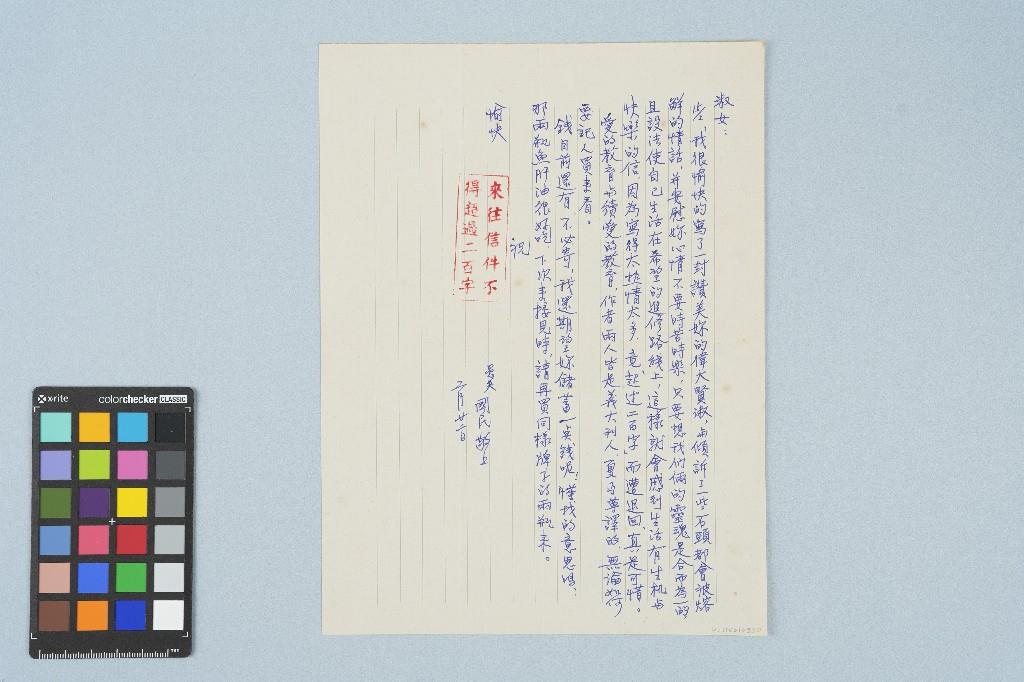 淑女:
些,我很愉快的寫了一封讚美妳的偉大賢淑,與傾訴了一些石頭都會被熔
解的情話,并安慰妳心情不要時苦時樂,只要想我们倆的靈魂是合而為一的
且設法使自己生活在希望的進修路线上,這樣就會感到生活有生机与
快樂的信,因為寫得太热情太多,竟起过二百字,而遭退回,真是可惜。
愛的教育与續愛的教育,作者兩人皆是義大利人,夏丏尊譯的,無論如何
要託人買來看。
錢目前還有,不必寄,我還期望妳儲蓄一点錢呢!懂我的意思嗎?
那兩瓶魚肝油很好吃,下次來接見時,請再買同樣牌子的兩瓶來。
祝
愉快
來往信件不
得超過二百字
國民
二月廿二日
x·rite colorchecker CLASSIC